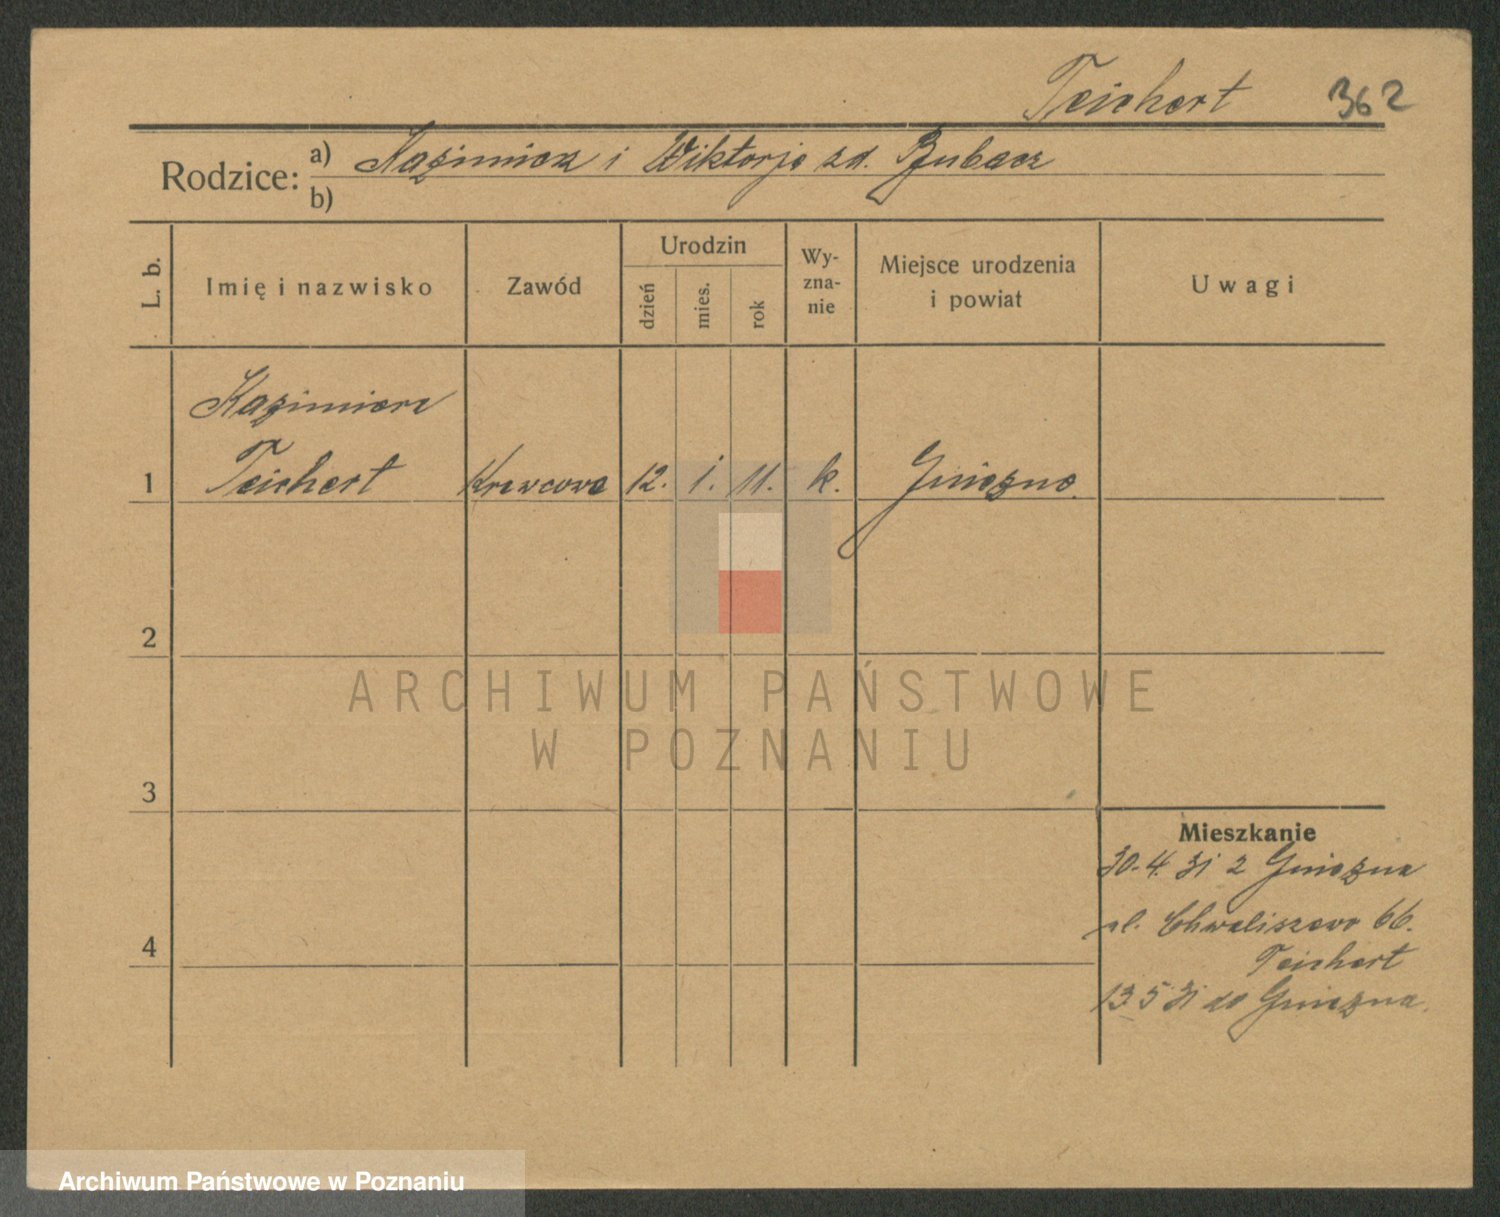 Teichert 362
Rodzice: a) Kazimierz i Wiktorja zd. Bubacz
b)
L. b. Imię i nazwisko Zawód Urodzin dzień mies. rok Wy-zna-nie Miejsce urodzenia i powiat Uwagi
Kazimiera
1 Teichert Krawcowa 12. 1. 11. k. Gniezno.
2
ARCHIWUM PAŃSTWOWE
W POZNANIU
3
Mieszkanie
30.4.31 z Gniezna
ul. Chwaliszewo 66.
4
Teichert
13.5.31 do Gniezna.
Archiwum Państwowe w Poznaniu